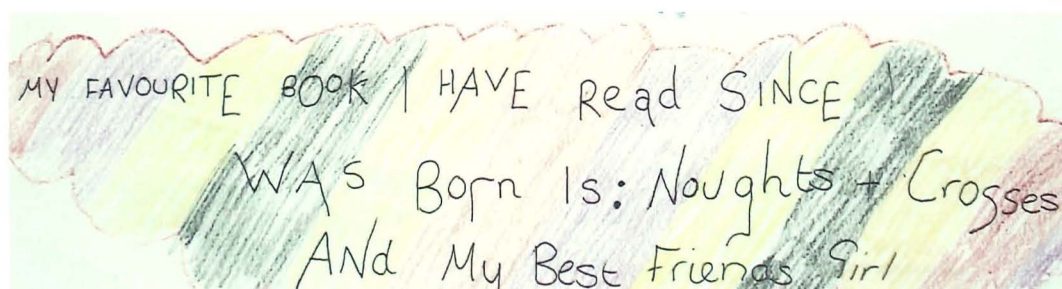 MY FAVOURITE BOOK I HAVE Read SINCE I
WAS Born Is: Noughts + Crosses
ANd My Best Friends Girl